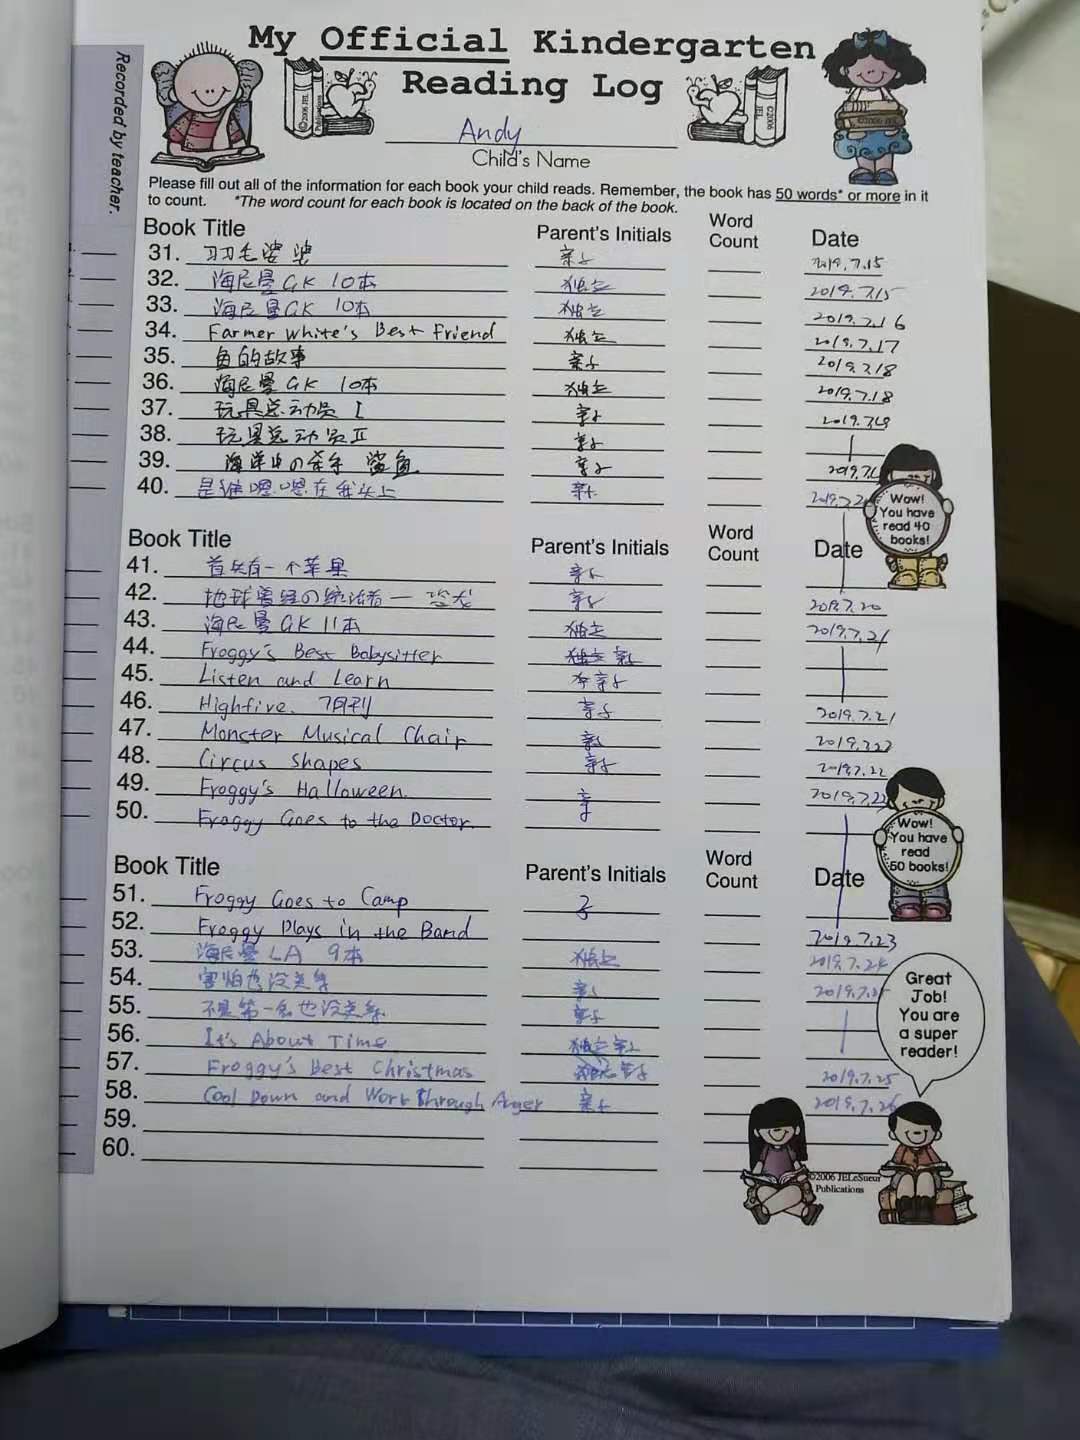 My Official Kindergarten
Reading Log
Recorded by teacher.
©2006 JEL
Publications
©2006
JEL
©2006 JEL
Andy
Child's Name
Please fill out all of the information for each book your child reads. Remember, the book has 50 words* or more in it
to count. *The word count for each book is located on the back of the book.
Book Title Parent's Initials Word Count Date
31. 羽毛婆婆 亲子 2019.7.15
32. 海尼曼GK 10本 独立 2019.7.15
33. 海尼曼GK 10本 独立 2019.7.16
34. Farmer White's Best Friend 独立 2019.7.17
35. 鱼的故事 亲子 2019.7.18
36. 海尼曼GK 10本 独立 2019.7.18
37. 玩具总动员 I 亲子
38. 玩具总动员 II 亲子
39. 海洋中の杀手 鲨鱼 亲子
40. 是谁嗯嗯在我头上 亲子
Wow!
You have
read 40
books!
Book Title Parent's Initials Word Count Date
41. 首先有一个苹果 亲子
42. 地球曾经の统治者一恐龙 亲子 2019.7.20
43. 海尼曼GK 11本 独立 2019.7.21
44. Froggy's Best Babysitter 独立 亲子
45. Listen and Learn 亲子
46. Highfive. 7月刊 亲子 2019.7.21
47. Monster Musical Chair 亲子 2019.7.22
48. Circus Shapes 亲子 2019.7.22
49. Froggy's Halloween. 2019.7.23
50. Froggy Goes to the Doctor.
Wow!
You have
read
50 books!
Book Title Parent's Initials Word Count Date
51. Froggy Goes to Camp
52. Froggy Plays in the Band 2019.7.23
53. 海尼曼LA 9本 独立 2019.7.24
54. 害怕也没关系 亲子 2019.7.25
55. 不是第一名也没关系 亲子
56. It's About Time 独立 亲子
57. Froggy's Best Christmas 独立 亲子 2019.7.25
58. Cool Down and Work Through Anger 亲子 2019.7.26
59.
60.
Great
Job!
You are
a super
reader!
©2006 JELeSueur
Publications